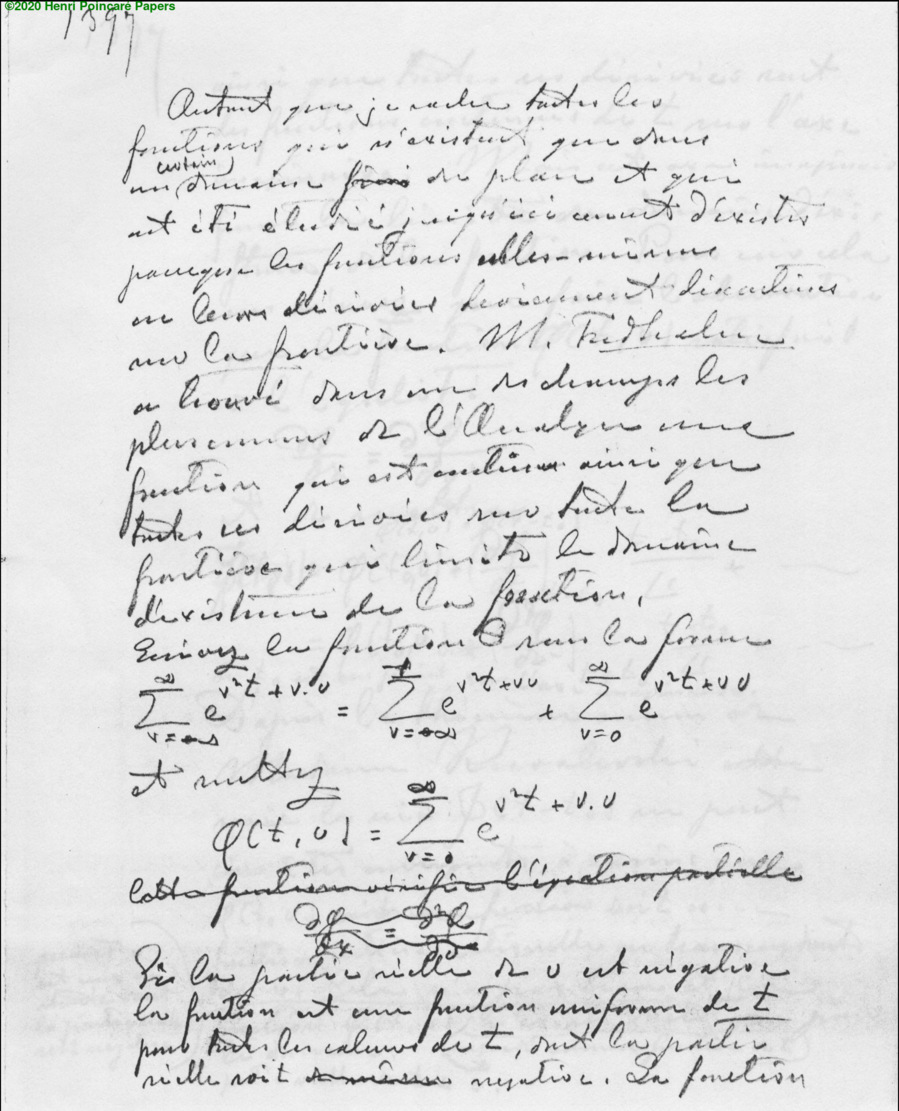 ©2020 Henri Poincaré Papers
Autant que je sache toutes les
fonctions qui n'existent que dans
certain
un domaine fini du plan et qui
ont été étudié jusqu'ici cessent d'exister
parceque les fonctions elles-mêmes
ou leurs dérivées deviennent discontinues
sur la frontière. M. Fredholm
a trouvé dans un des champs les
plus connus de l'Analyse une
fonction qui est continue ainsi que
toutes ses dérivées sur toute la
frontière qui limite le domaine
d'existence de la fonction.
Ecrivez la fonction Θ sous la forme
∞ v²t + v.u -1 v²t + vu ∞ v²t + vu
∑ e = ∑ e + ∑ e
v=-∞ v=-∞ v=0
et mettez
φ(t,u) = ∑_{v=0}^{∞} e^{v²t + v.u}
Cette fonction vérifie l'équation partielle
∂φ = ∂²φ
Si la partie réelle de u est négative
la fonction est une fonction uniforme de t
pour toutes les valeurs de t, dont la partie
réelle soit de même negative. La fonction